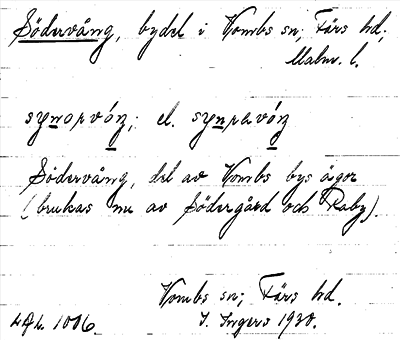 Södervång, bydel i Vombs sn; Färs hd;
Malm. l.
Södervång, del av Vombs bys ägor
(brukas nu av Södergård och Raby).
Vombs sn; Färs hd.
I. Ingers 1930.
LAL 1006.